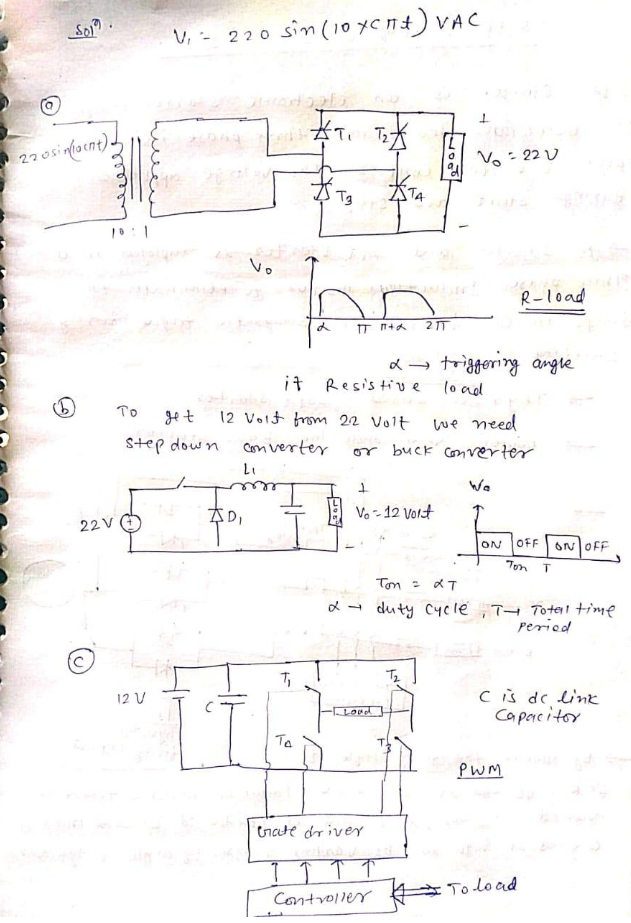 Solⁿ.
V₁ = 220 sin(10×cπt) VAC
(a)
220sin(10cπt)
10:1
T₁
T₂
T₃
T₄
Load
+
V₀ = 22V
-
V₀
α π π+α 2π
R-load
α → triggering angle
if Resistive load
(b) To get 12 Volt from 22 Volt we need
step down converter or buck converter
L₁
22V
D₁
Load
+
V₀=12 Volt
-
ON OFF ON OFF
Ton T
Ton = αT
α → duty cycle, T → Total time
period
(c)
12V
C
T₁
T₂
Load
T₄
T₃
C is dc link
Capacitor
PWM
Gate driver
Controller
To load